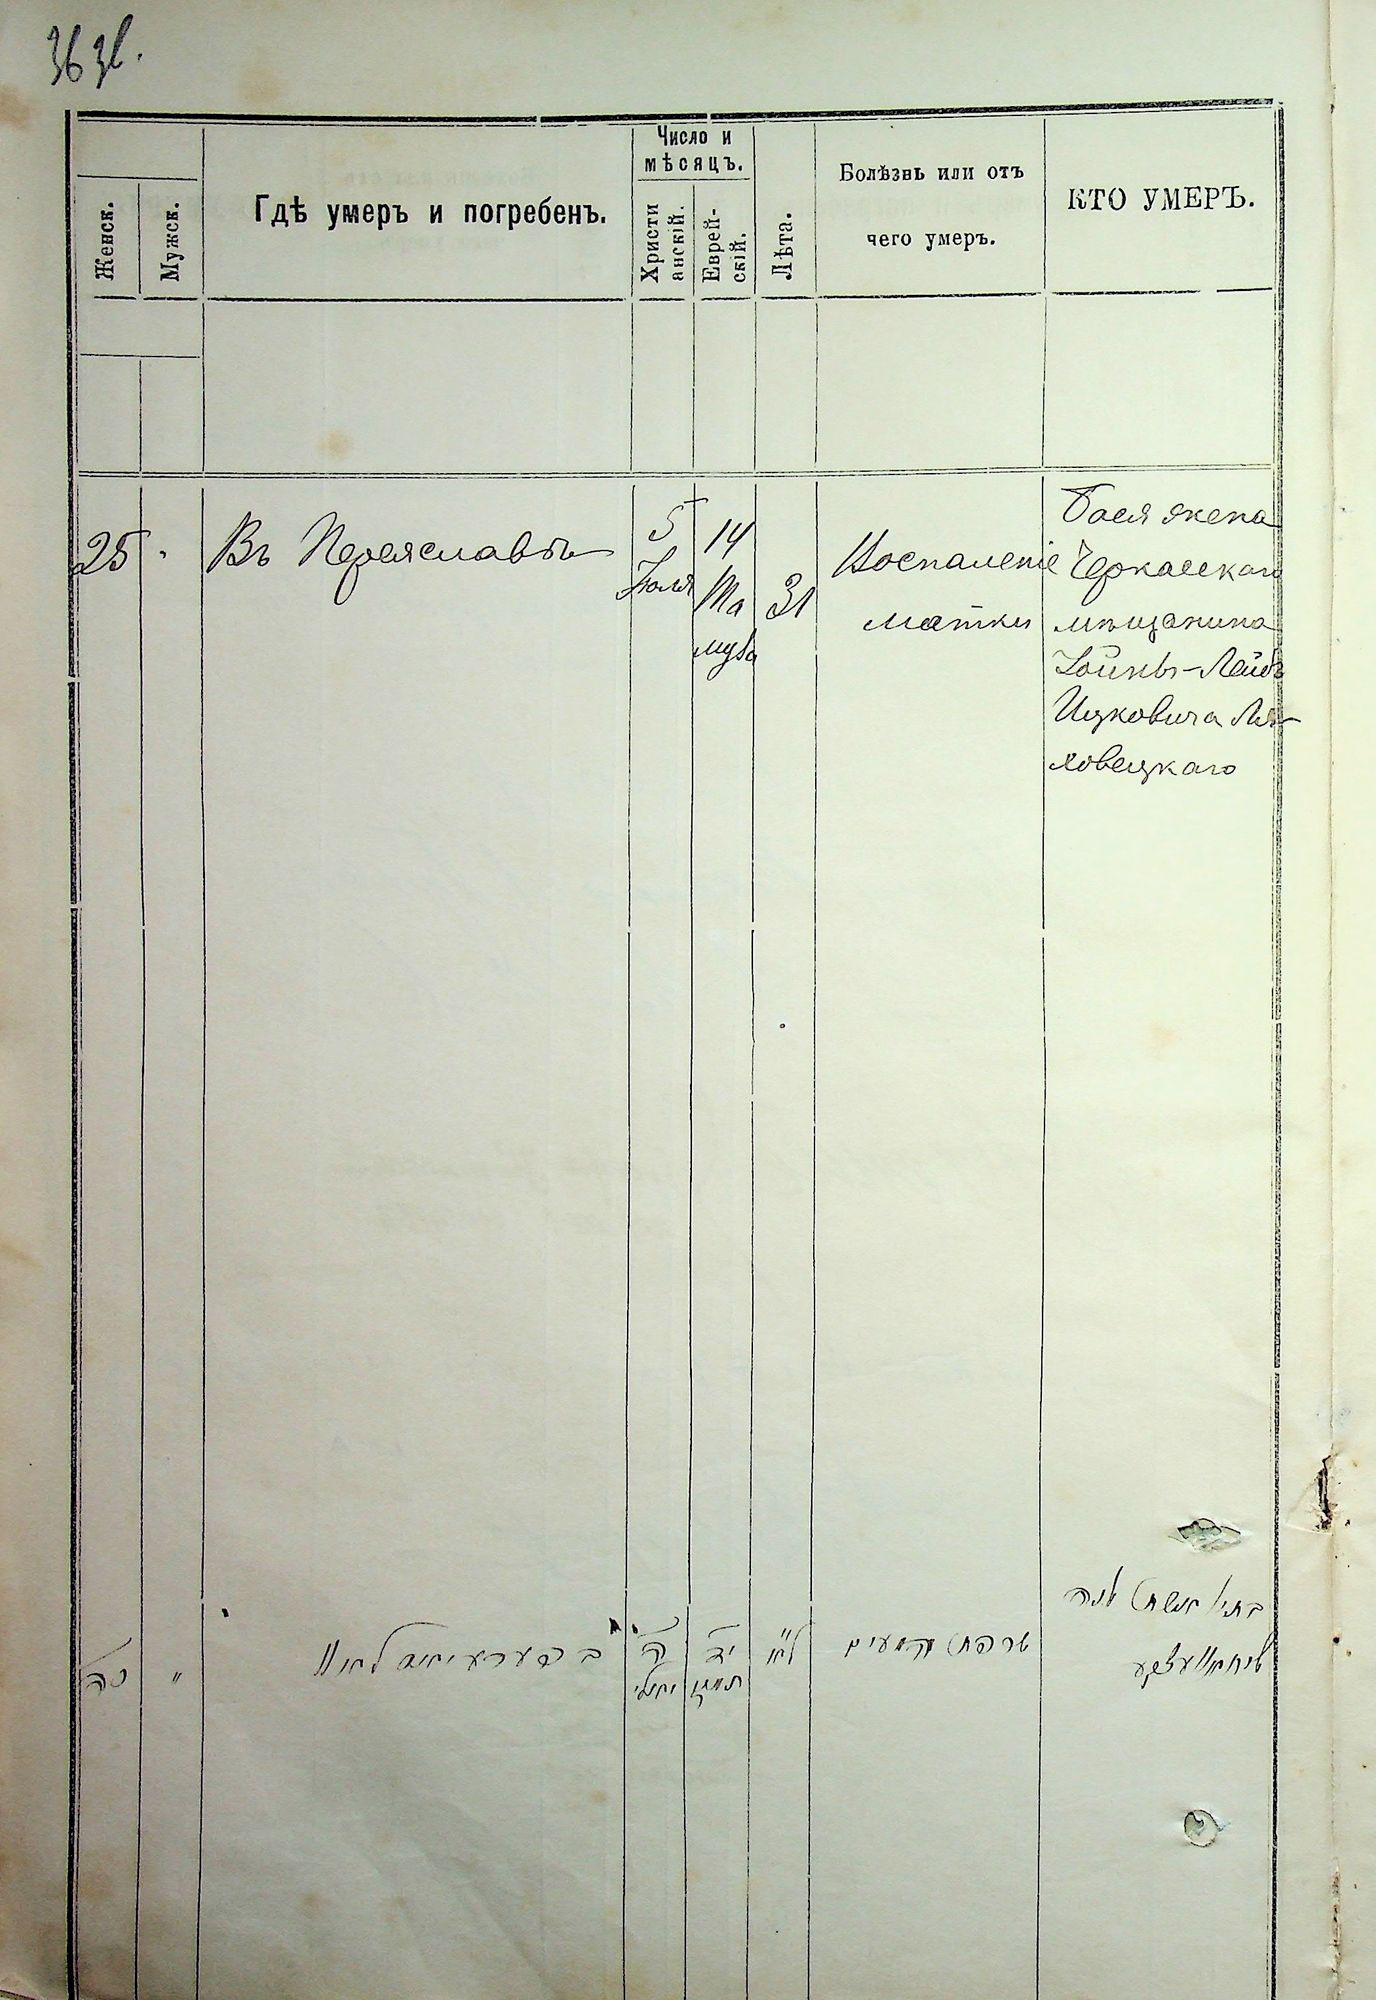 36 зв.
Женск.
Мужск.
Гдѣ умеръ и погребенъ.
Число и
мѣсяцъ.
Христи
анскій.
Еврей-
скій.
Лѣта.
Болѣзнь или отъ
чего умеръ.
КТО УМЕРЪ.
25
"
Въ Переяславѣ
5
Іюля
14
Та
муза
31
Воспаленіе
матки
Бася жена
Черкасскаго
мѣщанина
Хойны-Лейбъ
Ицковича Ля-
ховецкаго
כה
"
ה
יולי
יד
תמוז
ל״א